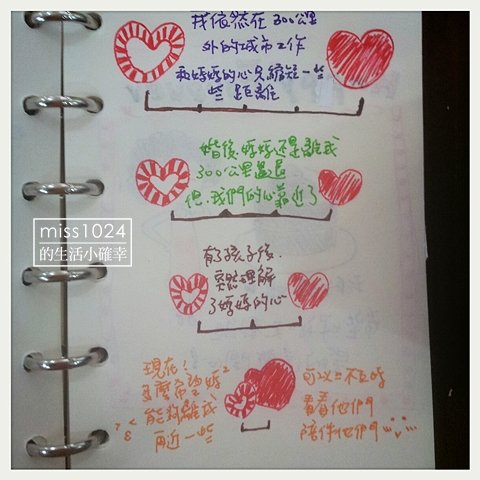 我依然在300公里
外的城市工作
和媽媽的心只縮短一些
些距離
婚後媽媽還是離我
300公里遠
但,我們的心靠近了
miss1024
的生活小確幸
有了孩子後,
突然理解
了媽媽的心
現在!
多麼希望媽媽
能夠離我
再近一些
可以三不五時
看看他們
陪伴他們